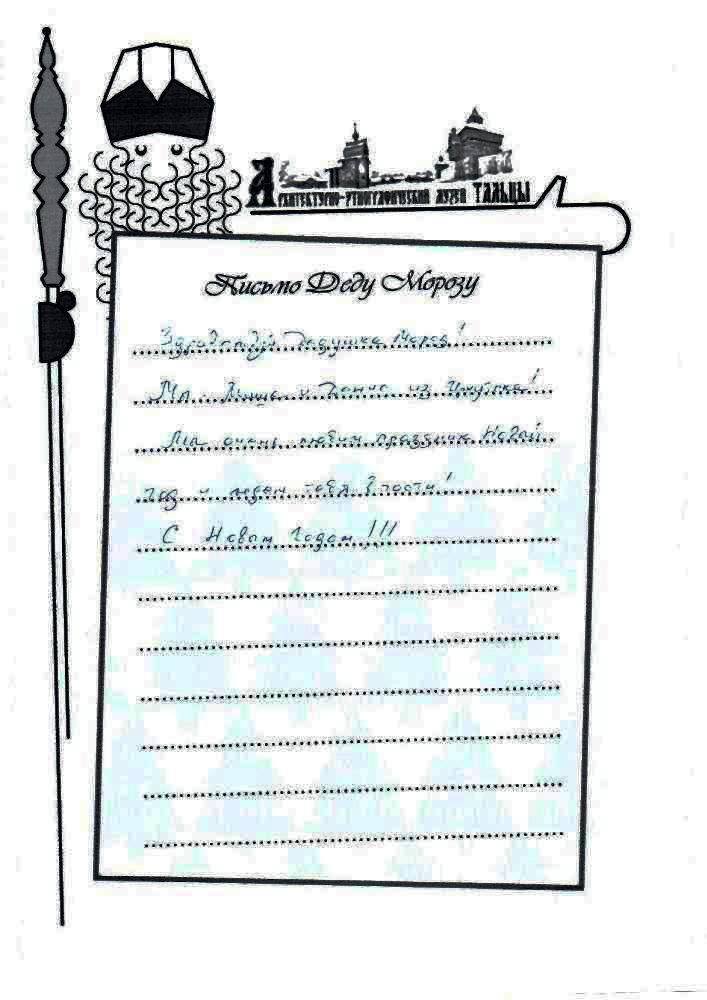 Архитектурно-этнографический музей ТАЛЬЦЫ
Письмо Деду Морозу
Здравствуй Дедушка Мороз!
Мы и из Иркутска!
Мы очень любим праздник Новый
год и ждем тебя в гости!
С Новым Годом!!!